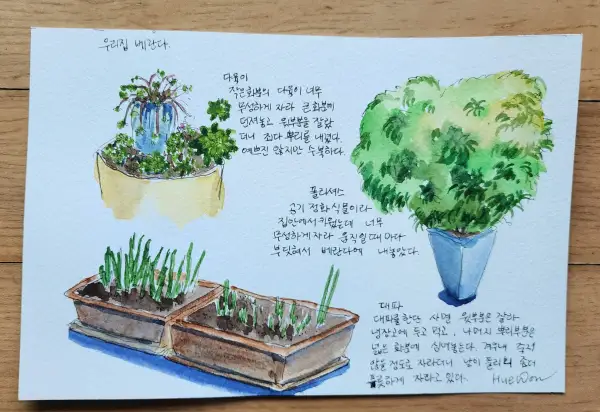 우리집 베란다.
다육이
작은화분의 다육이 너무
무성하게 자라 큰화분에
던져놓고 윗부분을 잘랐
더니 죄다 뿌리를 내렸다.
예쁘진 않지만 수북하다.
폴리셔스
공기 정화 식물이라
집안에서 키웠는데 너무
무성하게 자라 움직일때 마다
부딪혀서 베란다에 내놓았다.
대파
대파를 한단 사면 윗부분은 잘라
냉장고에 두고 먹고, 나머지 뿌리부분은
넓은 화분에 심어놓는다. 겨우내 죽지
않을 정도로 자라더니 날이 풀리니 좀더
꼿꼿하게 자라고 있다.
HueWon